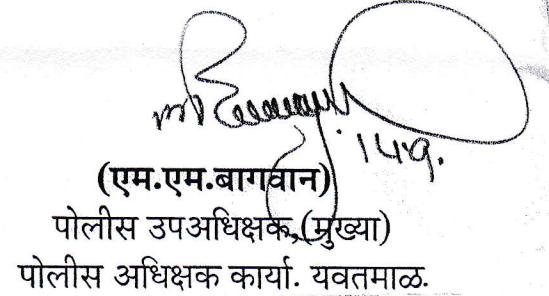 (एम.एम.बागवान)
पोलीस उपअधिक्षक,(मुख्या)
पोलीस अधिक्षक कार्या. यवतमाळ.